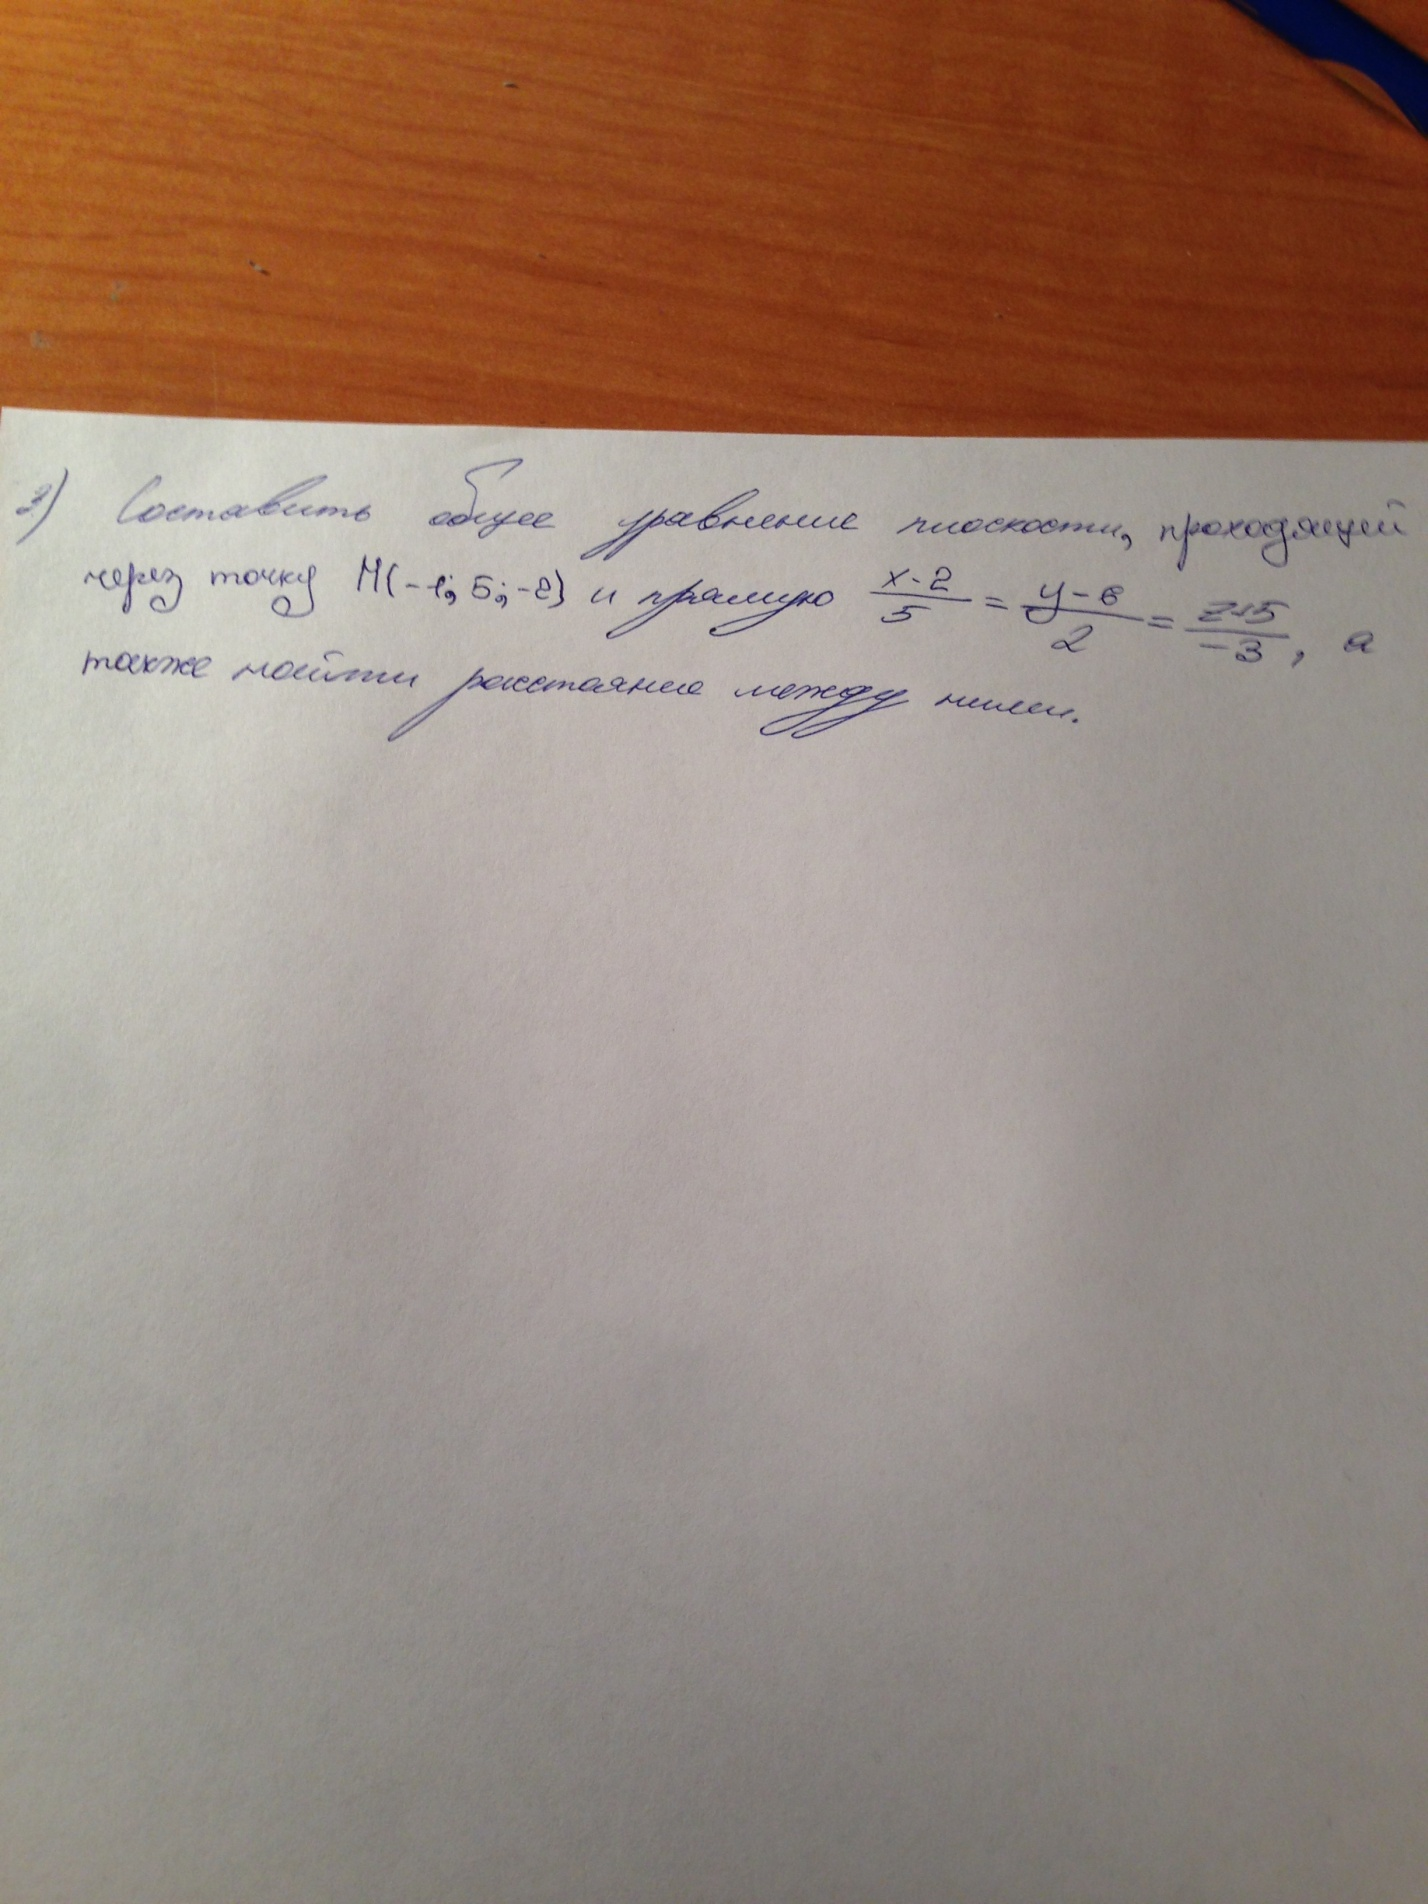 3) Составить общее уравнение плоскости, проходящей
через точку М(-1; 5; -2) и прямую x-2/5 = y-6/2 = z+5/-3, а
также найти расстояние между ними.